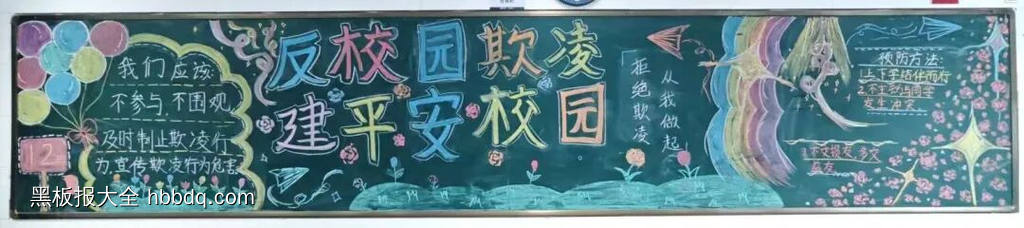 我们应该:
不参与、不围观、
及时制止欺凌行
为,宣传欺凌行为危害
12
反校园欺凌
建平安校园
「拒绝欺凌
从我做起」
预防方法:
1.上下学结伴而行
2.不主动与同学
发生冲突
3.不交损友,多交
益友
黑板报大全 hbbdq.com